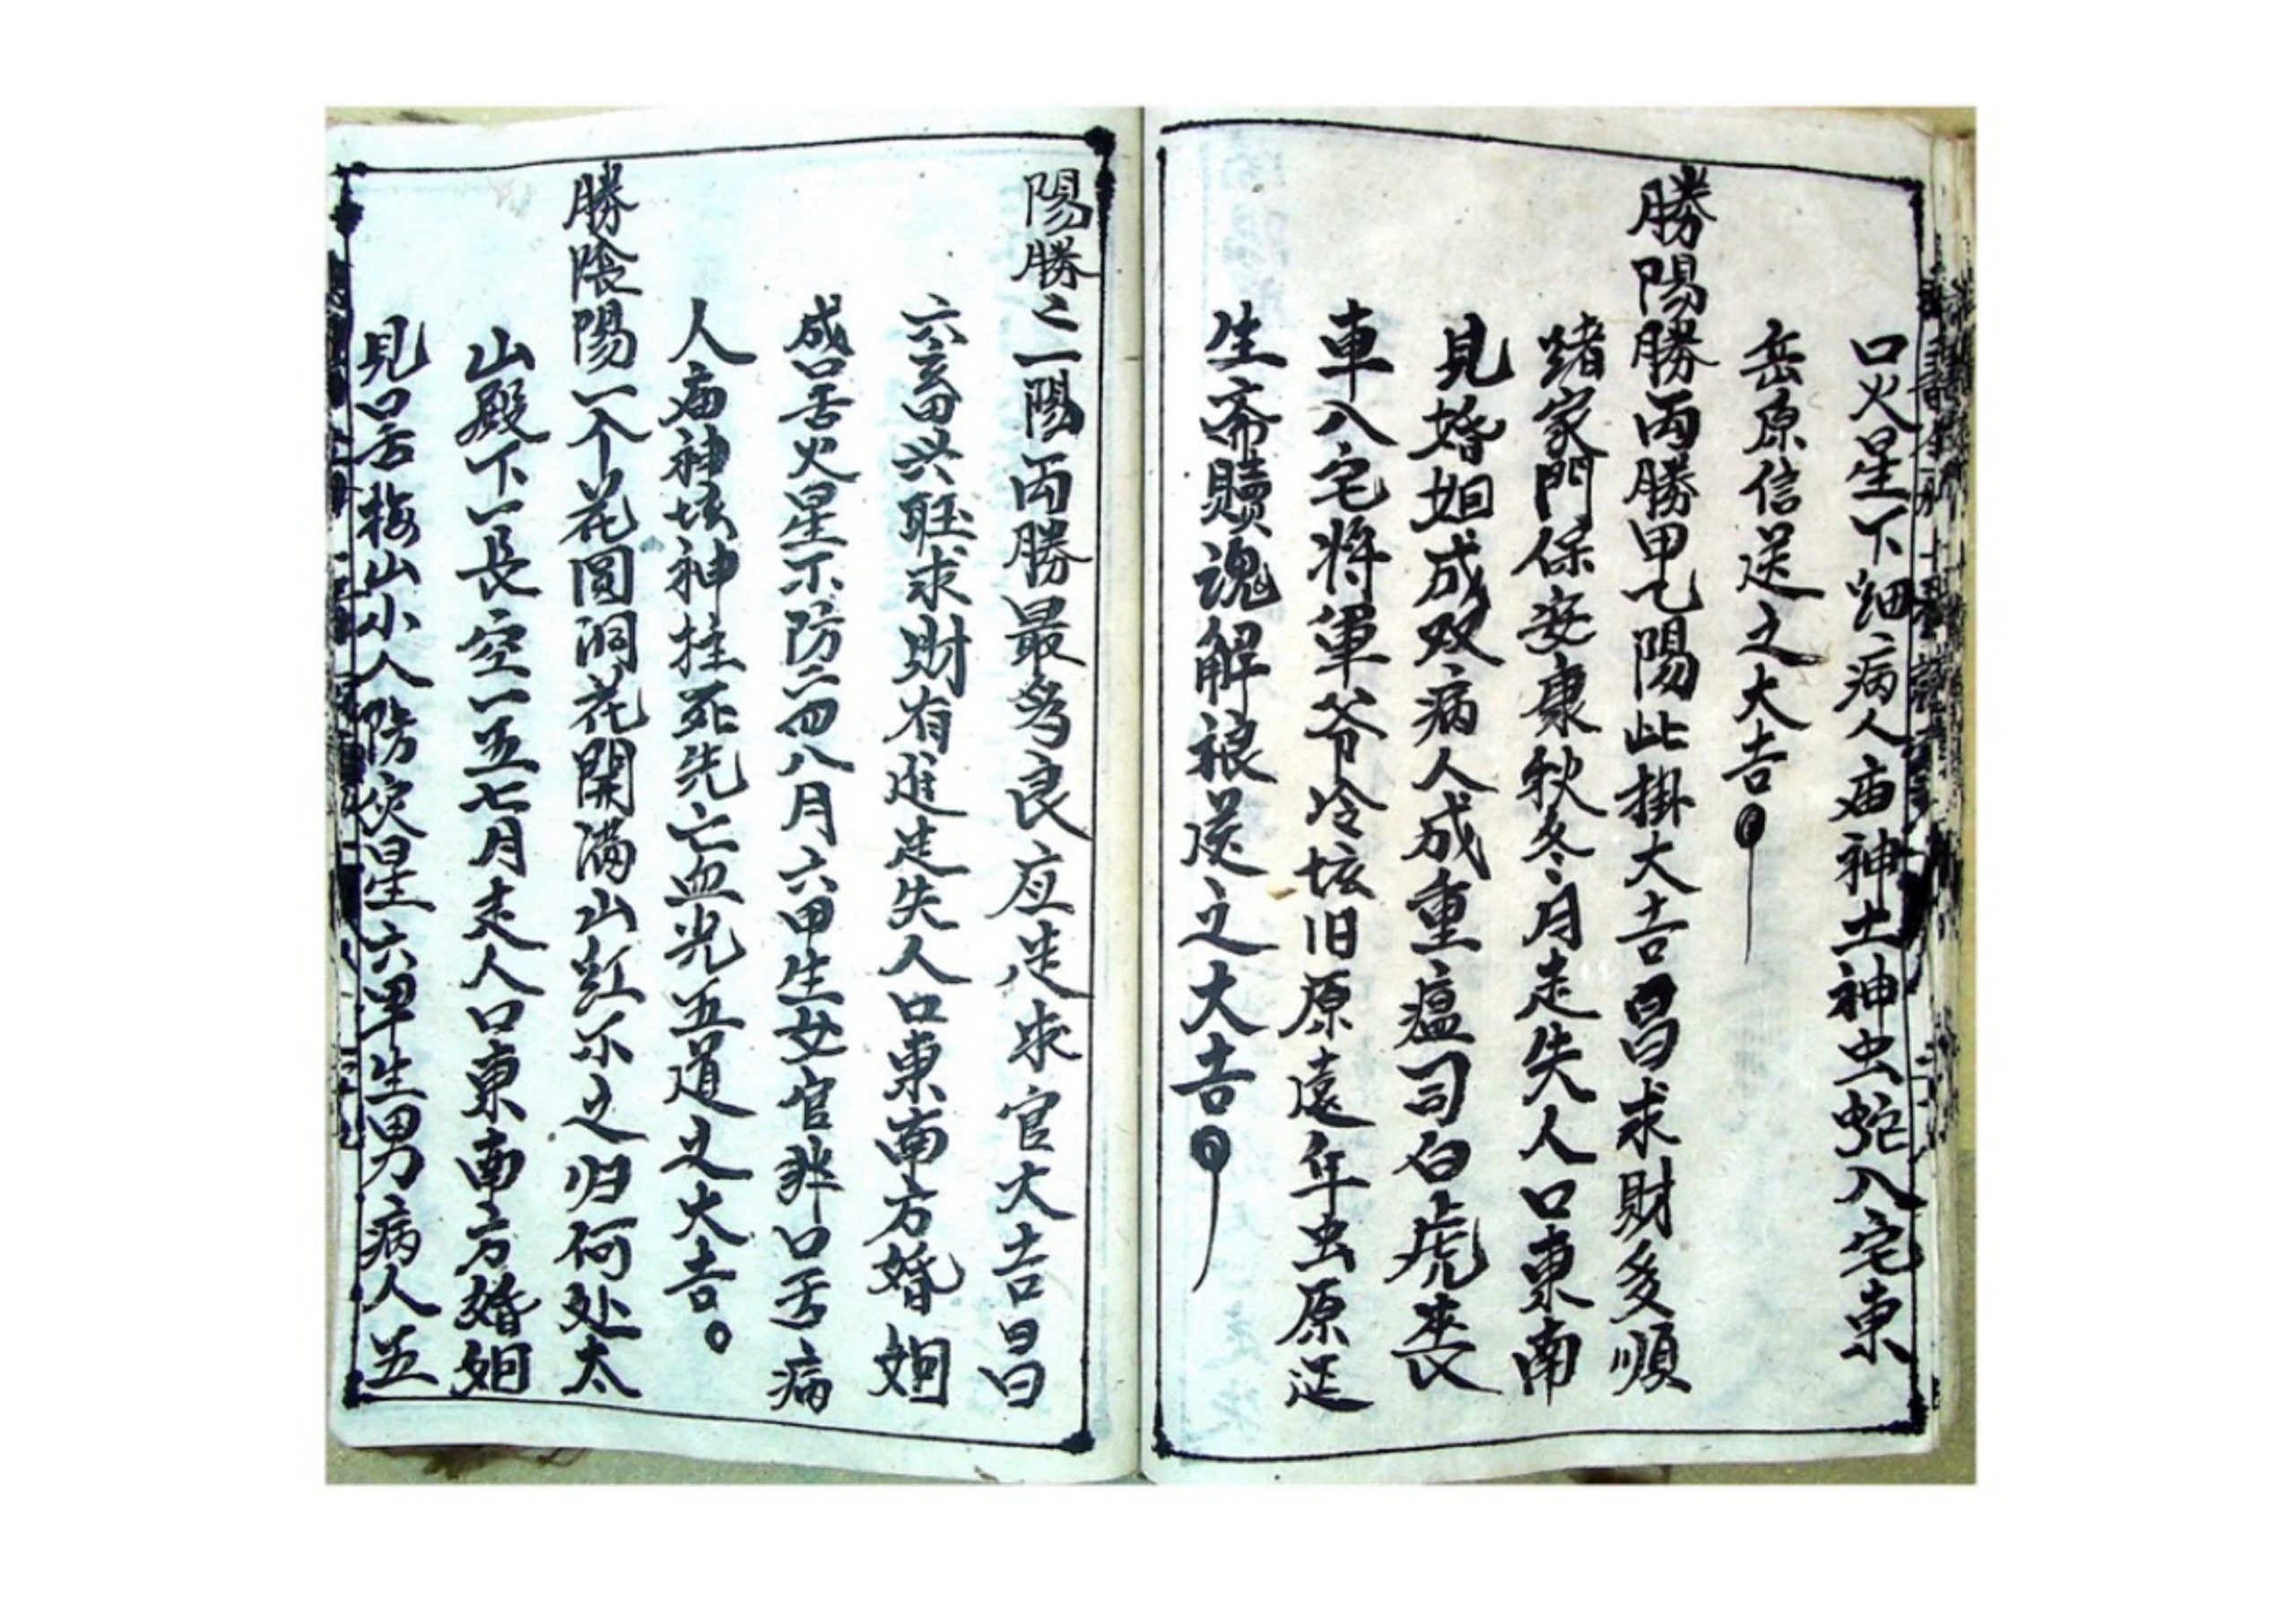 口火星下 病人庙神土神虫蛇入宅東
岳原信送之大吉
勝陽勝両勝甲乙陽此掛大吉昌求財多順
緒家門保安康秋冬月走失人口東南
見婚姻成双病人成重瘟司白虎丧
車入宅将軍爷冷坛旧原遠年虫原延
生斋贖魂解 送之大吉
陽勝之一陽両勝最為良应是求官大吉昌
六玄田兴旺求財有進走失人口東南方婚姻
成口舌火星不防二四八月六甲生女官非口舌病
人庙神坛神 死先亡血光五道之大吉。
勝陰陽一个花園洞花開满山紅不之归何处太
山殿下一長空一五七月走人口東南方婚姻
見口舌梅山小人防灾星六甲生男病人五